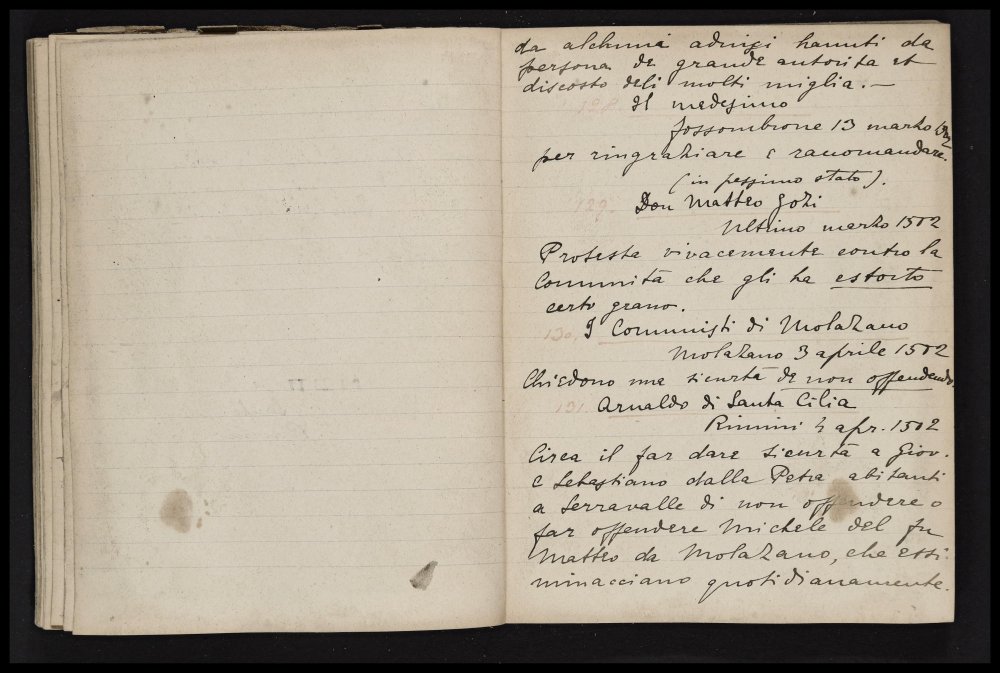 da alchuni advisi hauuti da
persona de grande autorita et
discosto deli molti miglia. —
128. Il medesimo
fossombrone 13 marzo 1502
per ringraziare e raccomandare.
(in pessimo stato).
129. Don Matteo Gozi
Ultimo marzo 1502
Protesta vivacemente contro la
Comunità che gli ha estorto
certo grano.
130. I Comunisti di Molazano
Molazano 3 aprile 1502
Chiedono una sicurtà de non offendendo
131. Arnaldo di Santa Cilia
Rimini 4 apr. 1502
Circa il far dare sicurtà a Giov.
e Sebastiano dalla Petra abitanti
a Serravalle di non offendere o
far offendere Michele del fu
Matteo da Molazano, che essi
minacciano quotidianamente.